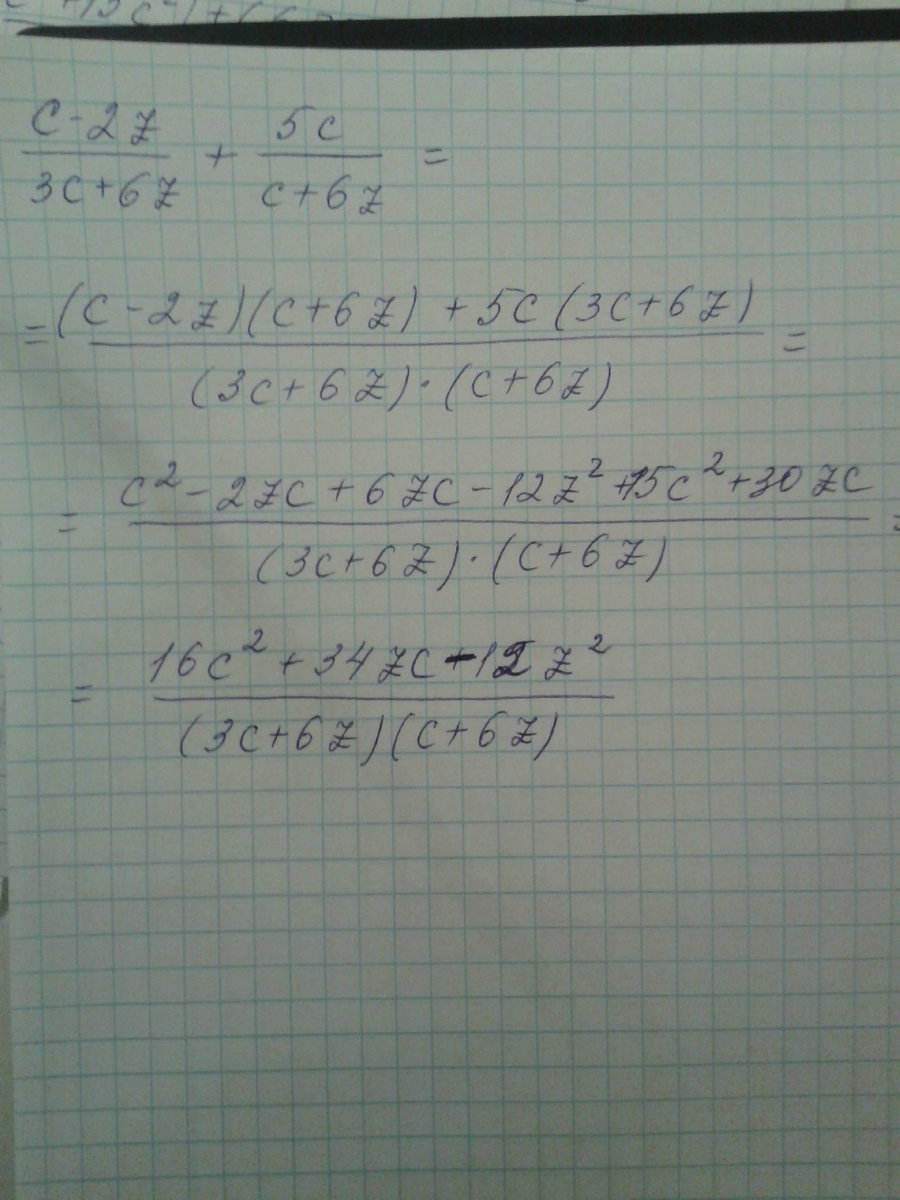 (c-2z)/(3c+6z) + 5c/(c+6z) =
= ((c-2z)(c+6z) + 5c(3c+6z))/((3c+6z)·(c+6z)) =
= (c²-2zc+6zc-12z²+15c²+30zc)/((3c+6z)·(c+6z)) =
= (16c²+34zc-12z²)/((3c+6z)(c+6z))